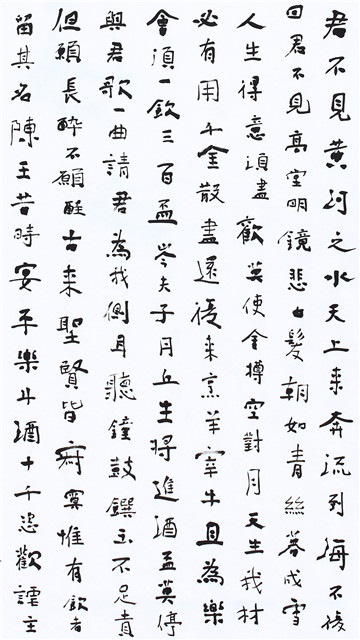 君不見黃河之水天上来奔流到海不復
回君不見高堂明鏡悲白髮朝如青絲暮成雪
人生得意須盡歡莫使金樽空對月天生我材
必有用千金散盡還復来烹羊宰牛且為樂
會須一飲三百盃岑夫子丹丘生將進酒盃莫停
與君歌一曲請君為我側耳聽鐘鼓饌玉不足貴
但願長醉不願醒古来聖賢皆寂寞惟有飲者
留其名陳王昔時宴平樂斗酒十千恣歡謔主